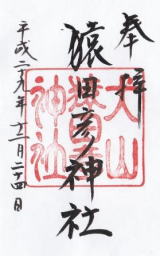 奉拝
猿田彦神社
平成二十九年十二月二十四日
犬山
猿田彦
神社